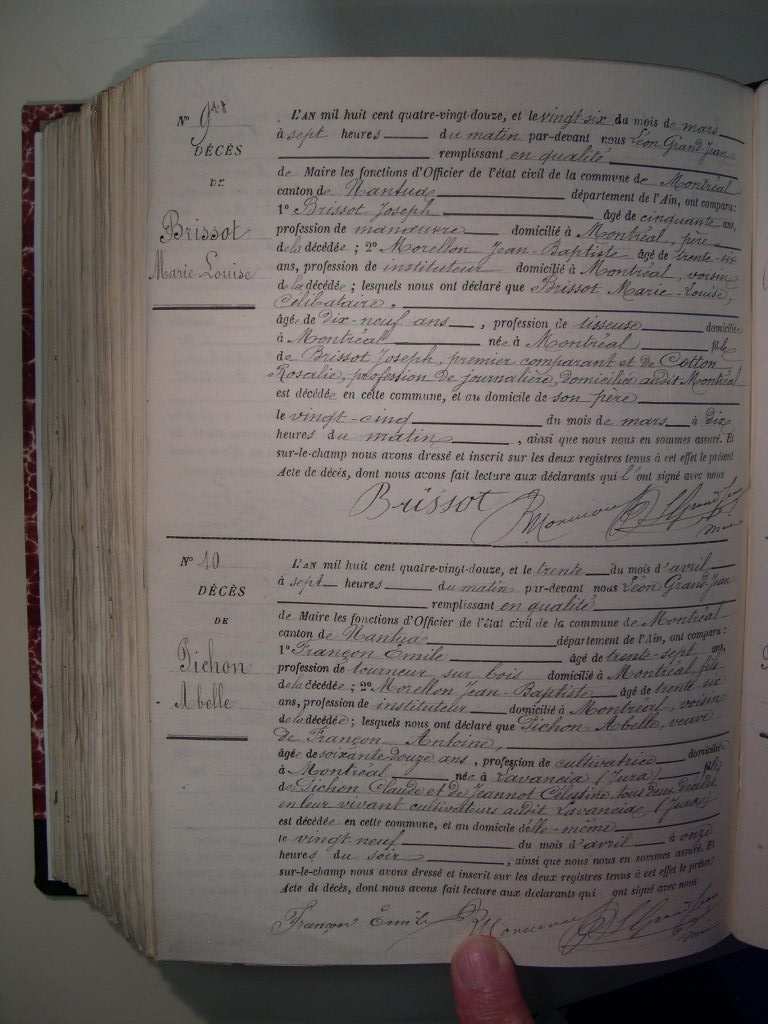 N° 9
DÉCÈS
DE
Brissot
Marie-Louise
L'AN mil huit cent quatre-vingt-douze, et le vingt six du mois de mars
à sept heures du matin par-devant nous Léon Grand-Jean
remplissant en qualité
de Maire les fonctions d'Officier de l'état civil de la commune de Montréal
canton de Nantua département de l'Ain, ont comparu :
1° Brissot Joseph âgé de cinquante ans,
profession de manœuvre domicilié à Montréal, père
de la décédée ; 2° Morellon Jean-Baptiste âgé de trente-six
ans, profession de instituteur domicilié à Montréal, voisin
de la décédée ; lesquels nous ont déclaré que Brissot Marie-Louise,
célibataire,
âgée de dix-neuf ans, profession de tisseuse domiciliée
à Montréal née à Montréal fille
de Brissot Joseph, premier comparant et de Cotton
Rosalie, profession de journalière, domiciliée audit Montréal
est décédée en cette commune, et au domicile de son père
le vingt-cinq du mois de mars à dix
heures du matin, ainsi que nous nous en sommes assuré. Et
sur-le-champ nous avons dressé et inscrit sur les deux registres tenus à cet effet le présent
Acte de décès, dont nous avons fait lecture aux déclarants qui l'ont signé avec nous
Brissot
N° 10
DÉCÈS
DE
Pichon
Abelle
L'AN mil huit cent quatre-vingt-douze, et le trente du mois d'avril
à sept heures du matin par-devant nous Léon Grand-Jean
remplissant en qualité
de Maire les fonctions d'Officier de l'état civil de la commune de Montréal
canton de Nantua département de l'Ain, ont comparu :
1° Françon Émile âgé de trente-sept ans,
profession de tourneur sur bois domicilié à Montréal fils
de la décédée ; 2° Morellon Jean-Baptiste âgé de trente six
ans, profession de instituteur domicilié à Montréal, voisin
de la décédée ; lesquels nous ont déclaré que Pichon Abelle, veuve
de Françon Antoine,
âgée de soixante douze ans, profession de cultivatrice domiciliée
à Montréal née à Lavancia (Jura) fille
de Pichon Claude et de Jeannot Célestine tous deux décédés
en leur vivant cultivateurs audit Lavancia (Jura)
est décédée en cette commune, et au domicile d'elle-même
le vingt neuf du mois d'avril à onze
heures du soir, ainsi que nous nous en sommes assuré. Et
sur-le-champ nous avons dressé et inscrit sur les deux registres tenus à cet effet le présent
Acte de décès, dont nous avons fait lecture aux déclarants qui ont signé avec nous
Françon Émile